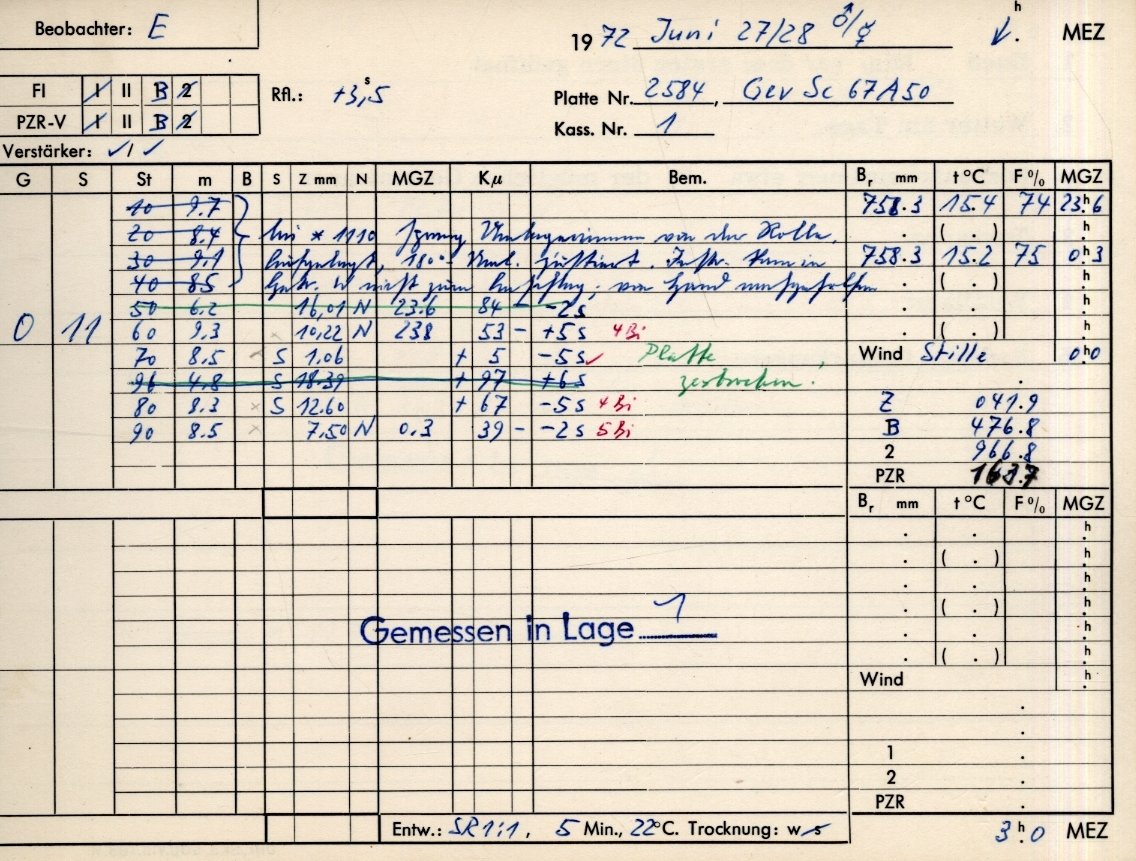 Beobachter: E
1972 Juni 27/28 ♂/☿ h . MEZ
FI I II B 2
PZR-V I II B 2
Rfl.: +3,5 s
Platte Nr. 2584, Gev Sc 67A50
Kass. Nr. 1
Verstärker: ✓/✓
G S St m B S Z mm N MGZ Kμ Bem. Br mm t°C F% MGZ
10 9.7 758.3 15.4 74 23h6
20 8.4 bei * 1110 von der Rolle. . ( . ) h
30 9.1 758.3 15.2 75 0h3
40 8.5 nicht zum von Hand nachgeholfen . ( . ) h
50 6.2 16,01 N 23.6 84 – -2s . . h
0 11 60 9.3 10,22 N 238 53 – +5s 4Bi . ( . ) h
70 8.5 S 1.06 + 5 -5s ✓ Platte Wind Stille 0h0
96 4.8 S 18.39 + 97 +6s zerbrochen! .
80 8.3 × S 12.60 + 67 -5s 4Bi Z 041.9
90 8.5 × 7,50 N 0.3 39 – -2s 5Bi B 476.8
2 966.8
PZR 163.7
Br mm t°C F% MGZ
. . h
. ( . ) h
. . h
. ( . ) h
Gemessen in Lage 1
. . h
. ( . ) h
Wind h
.
.
1 .
2 .
PZR .
Entw.: SR 1:1, 5 Min., 22°C. Trocknung: w s
3h0 MEZ